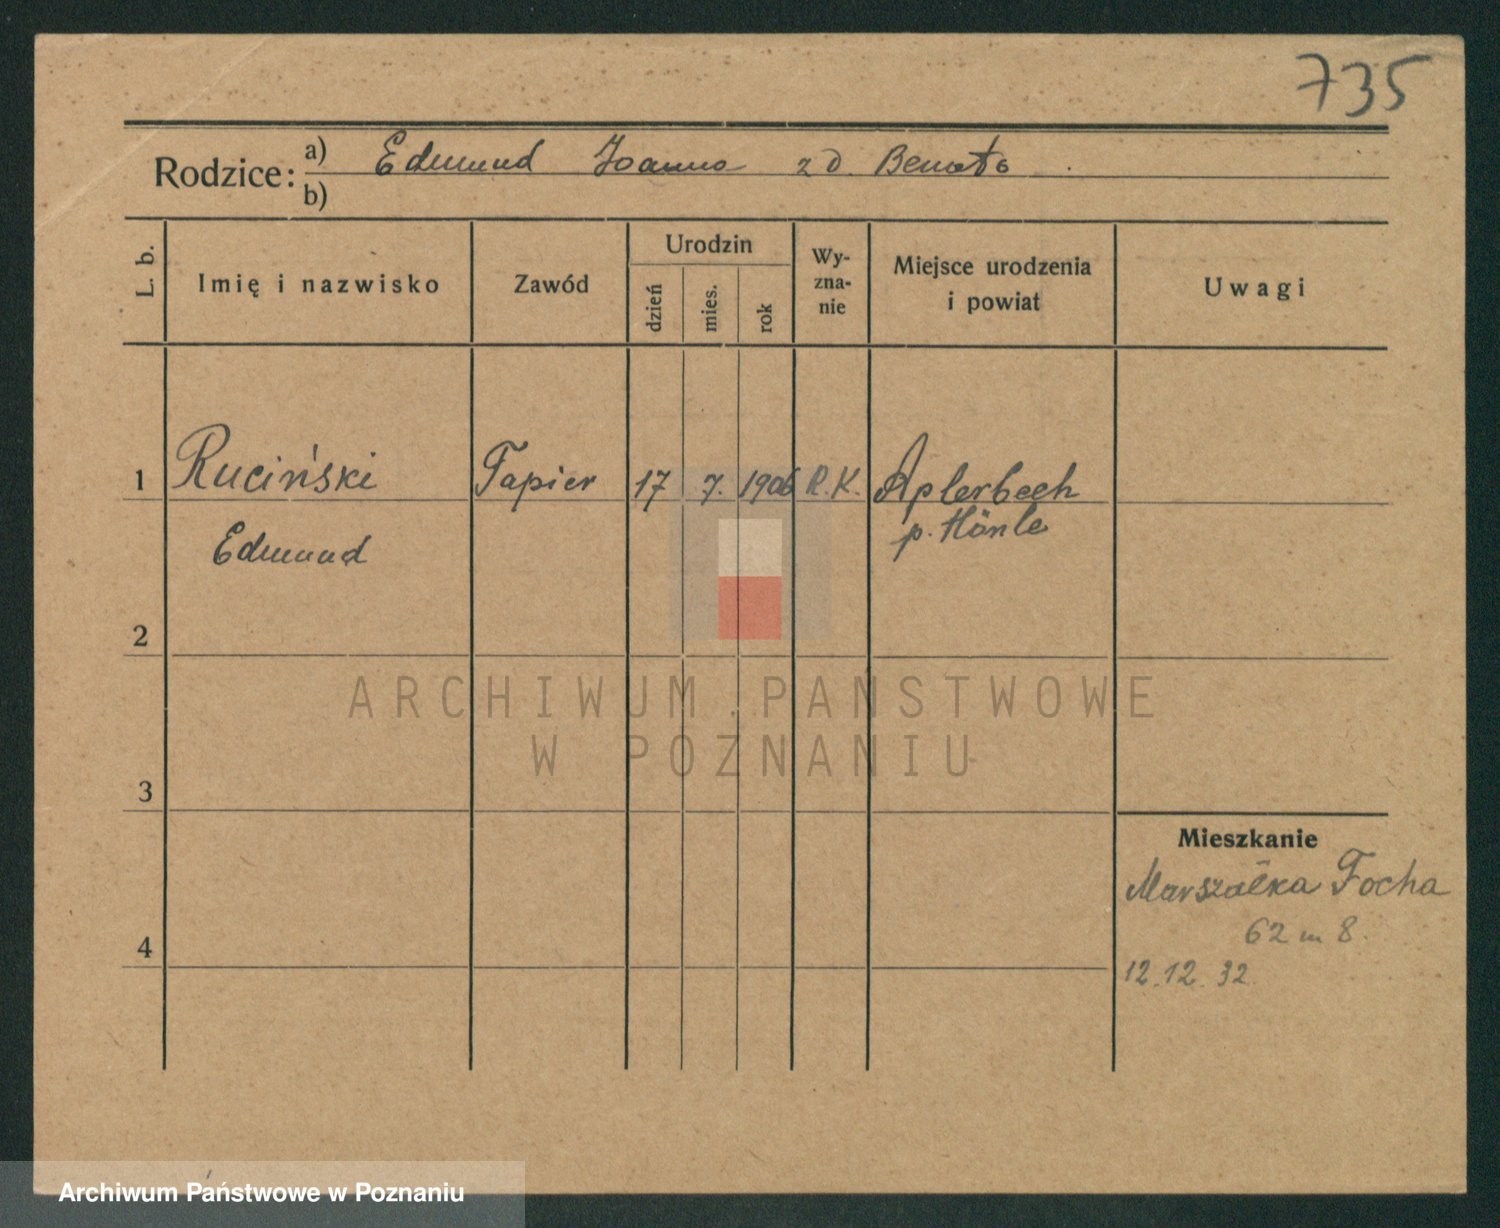 735
Rodzice: a) Edmund Joanna z d.
b)
L. b.
Imię i nazwisko
Zawód
Urodzin
dzień
mies.
rok
Wy-
zna-
nie
Miejsce urodzenia
i powiat
Uwagi
1 Ruciński Tapicer 17 7. 1906 R.K. Aplerbech
Edmund p. Hörde
2
ARCHIWUM PAŃSTWOWE
W POZNANIU
3
Mieszkanie
Marszałka Focha
62 m 8.
4
12.12.32
Archiwum Państwowe w Poznaniu